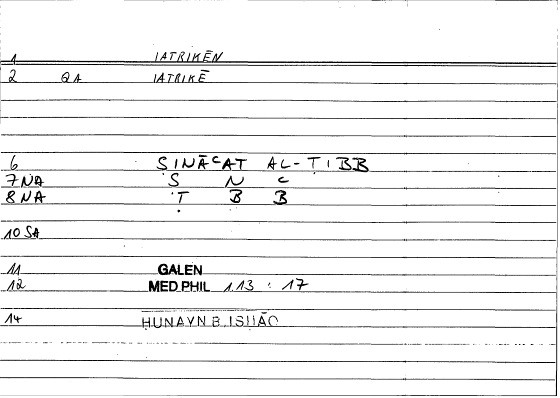 1 IATRIKĒN
2 QA IATRIKĒ
6 ṢINĀʿAT AL-ṬIBB
7 NA Ṣ N ʿ
8 NA Ṭ B B
10 SA
11 GALEN
12 MED.PHIL 1.13 : 17
14 ḤUNAYN B. ISḤĀQ